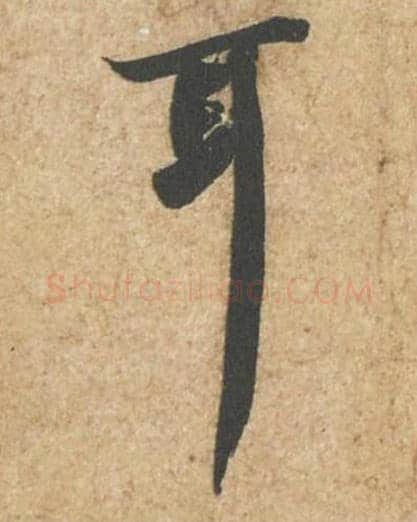 耳
Shufaziliao.COM